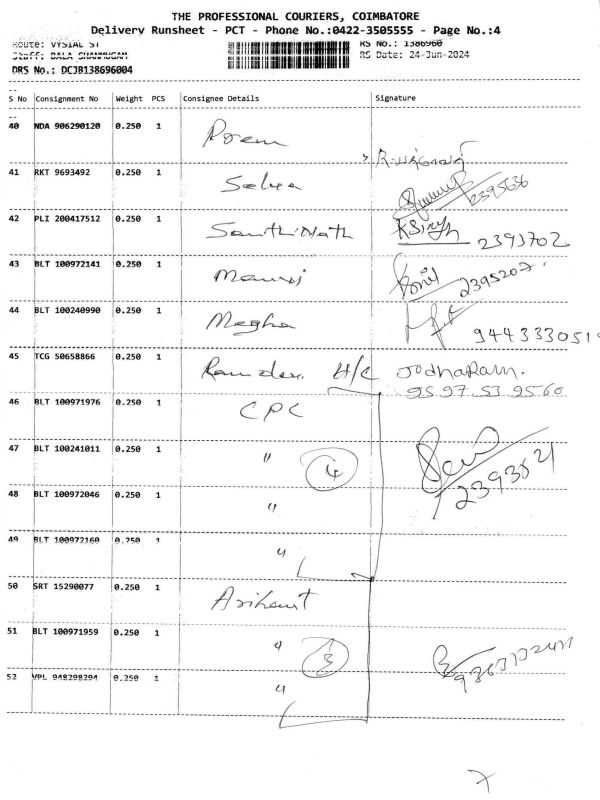 THE PROFESSIONAL COURIERS, COIMBATORE
Delivery Runsheet - PCT - Phone No.:0422-3505555 - Page No.:4
Route: VYSIAL ST RS No.: 1386960
Staff: BALA SHANMUGAM RS Date: 24-Jun-2024
DRS No.: DCJB138696004
S No Consignment No Weight PCS Consignee Details Signature
40 NDA 906290120 0.250 1
41 RKT 9693492 0.250 1 2395636
42 PLI 200417512 0.250 1 Santhi Nath 2393702
43 BLT 100972141 0.250 1 2395207
44 BLT 100240990 0.250 1 Megha
45 TCG 50658866 0.250 1 H/C Jodharam.
95 97 53 9560
46 BLT 100971976 0.250 1 CPC
47 BLT 100241011 0.250 1 " 4
48 BLT 100972046 0.250 1 "
49 BLT 100972160 0.250 1 "
50 SRT 15290077 0.250 1 Arihant
51 BLT 100971959 0.250 1 " 3
52 VPL 948298294 0.250 1 "